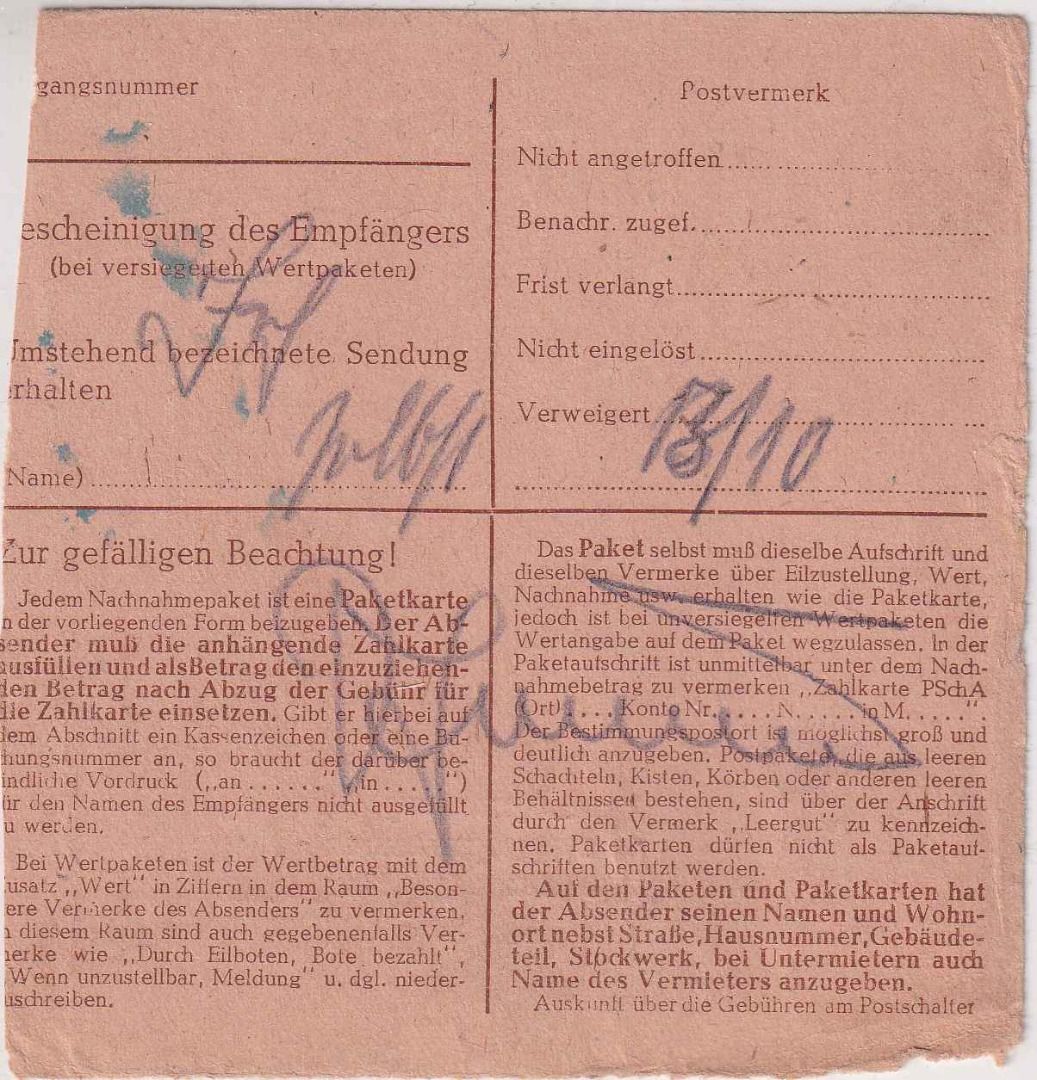 gangsnummer
escheinigung des Empfängers
(bei versiegelten Wertpaketen)
Umstehend bezeichnete Sendung
erhalten
Name)
selbst
Postvermerk
Nicht angetroffen
Benachr. zugef.
Frist verlangt
Nicht eingelöst
Verweigert
13/10
Zur gefälligen Beachtung!
Jedem Nachnahmepaket ist eine Paketkarte
n der vorliegenden Form beizugeben. Der Ab-
sender muß die anhängende Zahlkarte
ausfüllen und als Betrag den einzuziehen-
den Betrag nach Abzug der Gebühr für
die Zahlkarte einsetzen. Gibt er hierbei auf
dem Abschnitt ein Kassenzeichen oder eine Bu-
hungsnummer an, so braucht der darüber be-
indliche Vordruck („an . . . . . . “ „in . . . . “)
ür den Namen des Empfängers nicht ausgefüllt
u werden.
Bei Wertpaketen ist der Wertbetrag mit dem
usatz „Wert“ in Ziffern in dem Raum „Beson-
ere Vermerke des Absenders“ zu vermerken.
n diesem Raum sind auch gegebenenfalls Ver-
merke wie „Durch Eilboten, Bote bezahlt“,
Wenn unzustellbar, Meldung“ u. dgl. nieder-
uschreiben.
Das Paket selbst muß dieselbe Aufschrift und
dieselben Vermerke über Eilzustellung, Wert,
Nachnahme usw. erhalten wie die Paketkarte,
jedoch ist bei unversiegelten Wertpaketen die
Wertangabe auf dem Paket wegzulassen. In der
Paketaufschrift ist unmittelbar unter dem Nach-
nahmebetrag zu vermerken „Zahlkarte PSchA
(Ort). . . . Konto Nr. . . . . N. . . . . in M. . . . . .“.
Der Bestimmungspostort ist möglichst groß und
deutlich anzugeben. Postpakete, die aus leeren
Schachteln, Kisten, Körben oder anderen leeren
Behältnissen bestehen, sind über der Anschrift
durch den Vermerk „Leergut“ zu kennzeich-
nen. Paketkarten dürfen nicht als Paketauf-
schriften benutzt werden.
Auf den Paketen und Paketkarten hat
der Absender seinen Namen und Wohn-
ort nebst Straße, Hausnummer, Gebäude-
teil, Stockwerk, bei Untermietern auch
Name des Vermieters anzugeben.
Auskunft über die Gebühren am Postschalter